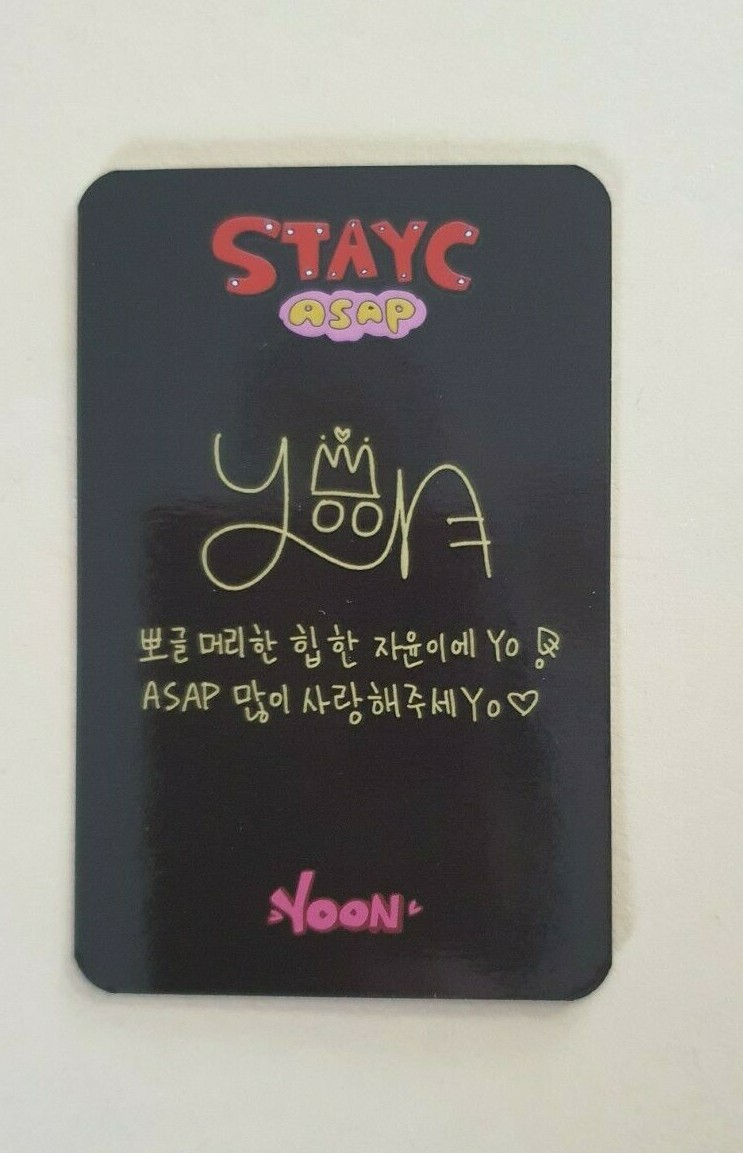 STAYC
ASAP
yoon
뽀글 머리한 힙한 자윤이에 Yo
ASAP 많이 사랑해주세Yo♡
YOON